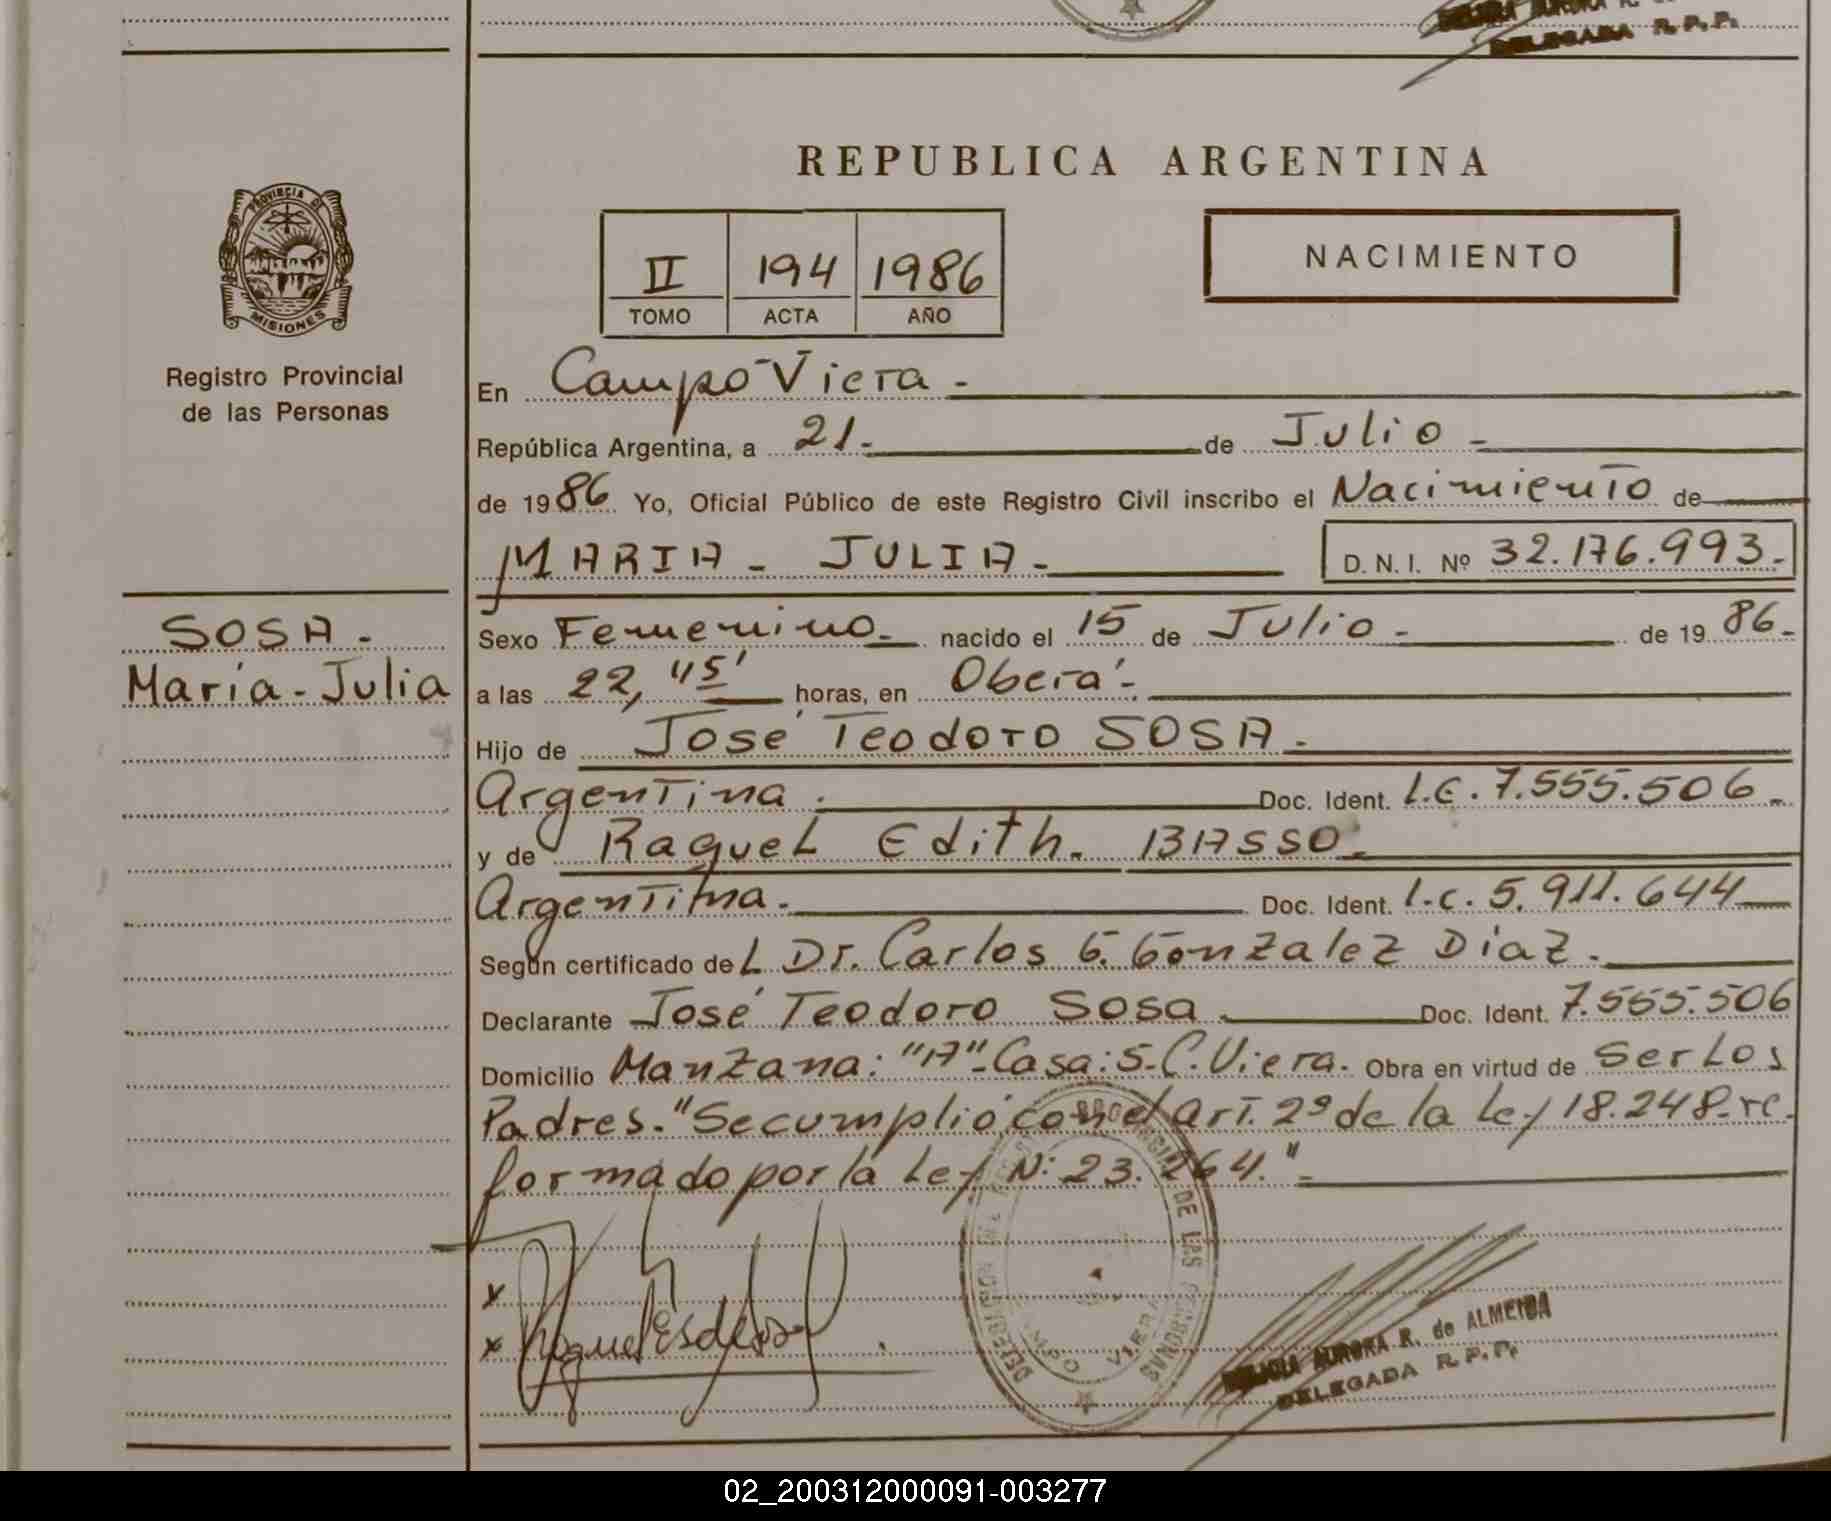 DELEGADA R. P. P.
REPUBLICA ARGENTINA
PROVINCIA DE
MISIONES
Registro Provincial
de las Personas
II 194 1986
TOMO ACTA AÑO
NACIMIENTO
En Campo Viera.-
República Argentina, a 21.- de Julio.-
de 1986. Yo, Oficial Público de este Registro Civil inscribo el Nacimiento de
MARIA - JULIA.- D. N. I. Nº 32.176.993.-
SOSA.-
María - Julia
Sexo Femenino.- nacido el 15 de Julio.- de 1986.-
a las 22,45' horas, en Oberá.-
Hijo de José Teodoro SOSA.-
Argentina.- Doc. Ident. L.E. 7.555.506.-
y de Raquel Edith. BASSO.-
Argentina.- Doc. Ident. L.C. 5.911.644
Según certificado del Dr. Carlos G. Gonzalez Diaz.-
Declarante José Teodoro Sosa.- Doc. Ident. 7.555.506
Domicilio Manzana: "A"-Casa: 5-C. Viera.- Obra en virtud de Ser Los
Padres.- "Se cumplió con el art. 2º de la Ley 18.248-re-
formado por la Ley N: 23.264."-
x
x Raquel E s de Sosa
DELEGACION
DE LAS PERSONAS
CAMPO VIERA
AURORA R. de ALMEIDA
DELEGADA R. P. P.
02_200312000091-003277